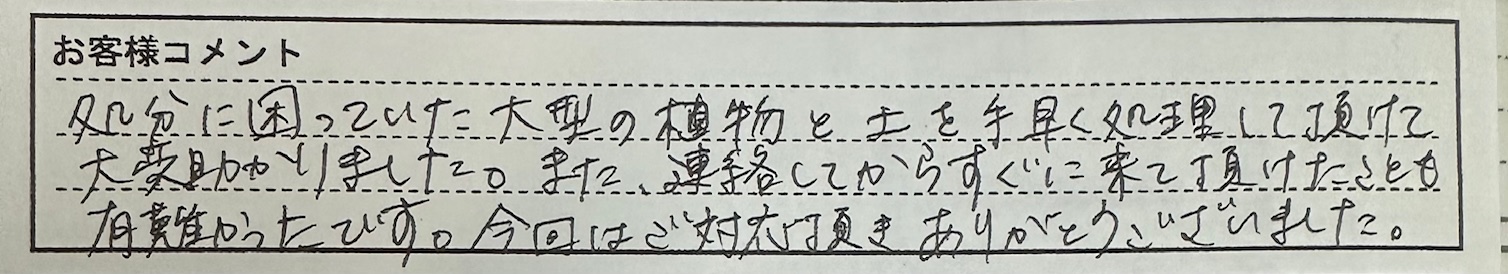 お客様コメント
処分に困っていた大型の植物と土を手早く処理して頂けて
大変助かりました。また、連絡してからすぐに来て頂けたことも
有難かったです。今回はご対応頂きありがとうございました。